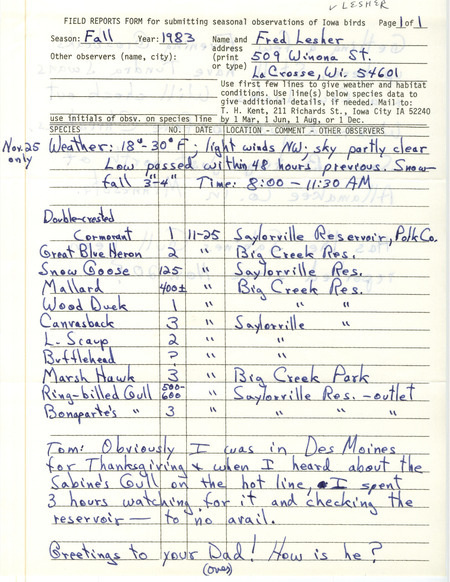 ✓ LESHER
FIELD REPORTS FORM for submitting seasonal observations of Iowa birds Page 1 of 1
Season: Fall Year: 1983 Name and Fred Lesher
address
Other observers (name, city): (print 509 Winona St.
or type) LaCrosse, Wi. 54601
Use first few lines to give weather and habitat
conditions. Use line(s) below species data to
give additional details, if needed. Mail to:
T. H. Kent, 211 Richards St., Iowa City IA 52240
use initials of obsv. on species line by 1 Mar, 1 Jun, 1 Aug, or 1 Dec.
SPECIES NO. DATE LOCATION - COMMENT - OTHER OBSERVERS
Nov. 25 only Weather: 18°-30°F; light winds NW; sky partly clear
Low passed within 48 hours previous. Snow-
fall 3"-4" Time: 8:00 - 11:30 AM
Double-crested
Cormorant 1 11-25 Saylorville Reservoir, Polk Co.
Great Blue Heron 2 " Big Creek Res.
Snow Goose 125 " Saylorville Res.
Mallard 400± " Big Creek Res.
Wood Duck 1 " " "
Canvasback 3 " Saylorville "
L. Scaup 2 " "
Bufflehead ? " "
Marsh Hawk 3 " Big Creek Park
Ring-billed Gull 500-600 " Saylorville Res. - outlet
Bonaparte's " 3 " " "
Tom: Obviously I was in Des Moines
for Thanksgiving & when I heard about the
Sabine's Gull on the hot line, I spent
3 hours watching for it and checking the
reservoir — to no avail.
Greetings to your Dad! How is he?
(over)